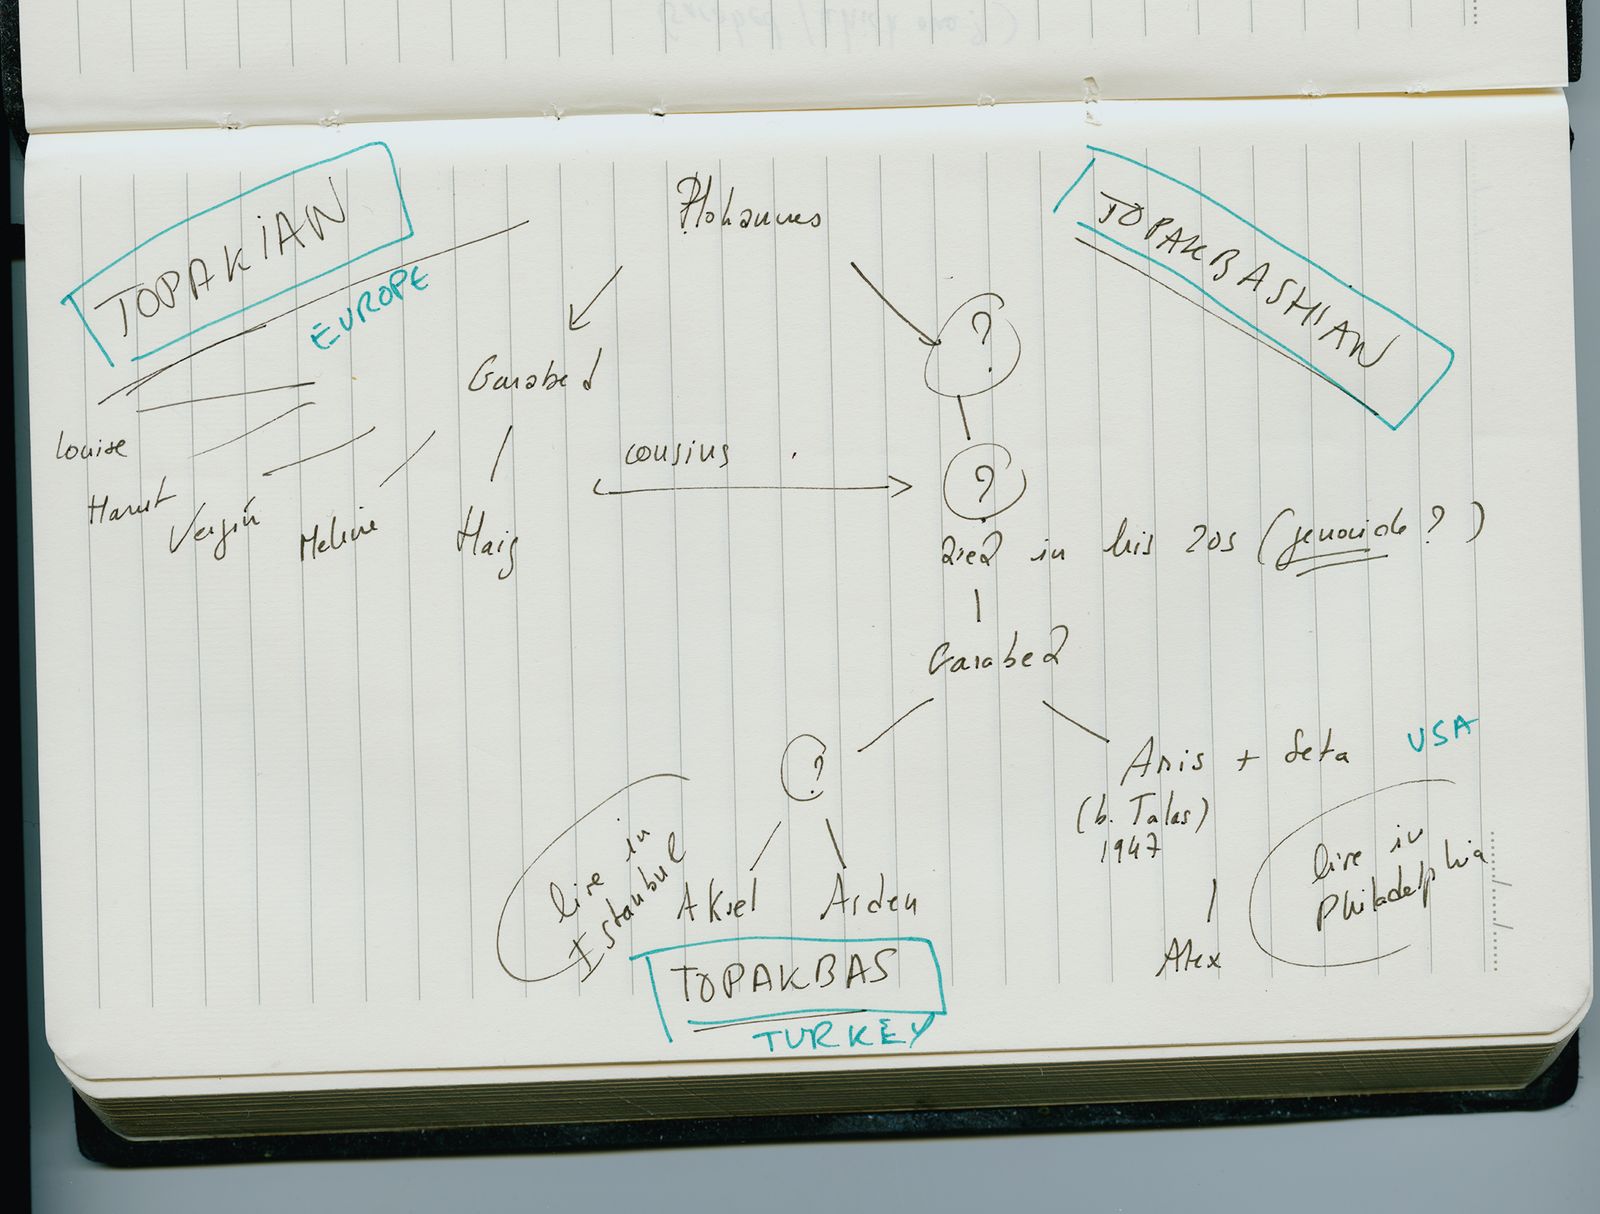 TOPAKIAN
EUROPE
Hohannes
TOPAKBASHIAN
?
Garabed
Louise
Harut
Vergin
Meline
Haig
cousins
?
died in his 20s (genocide?)
Garabed
?
Anis + Seta
USA
(b. Talas)
1947
live in
Philadelphia
live in
Istanbul
Aksel
Arden
Alex
TOPAKBAS
TURKEY